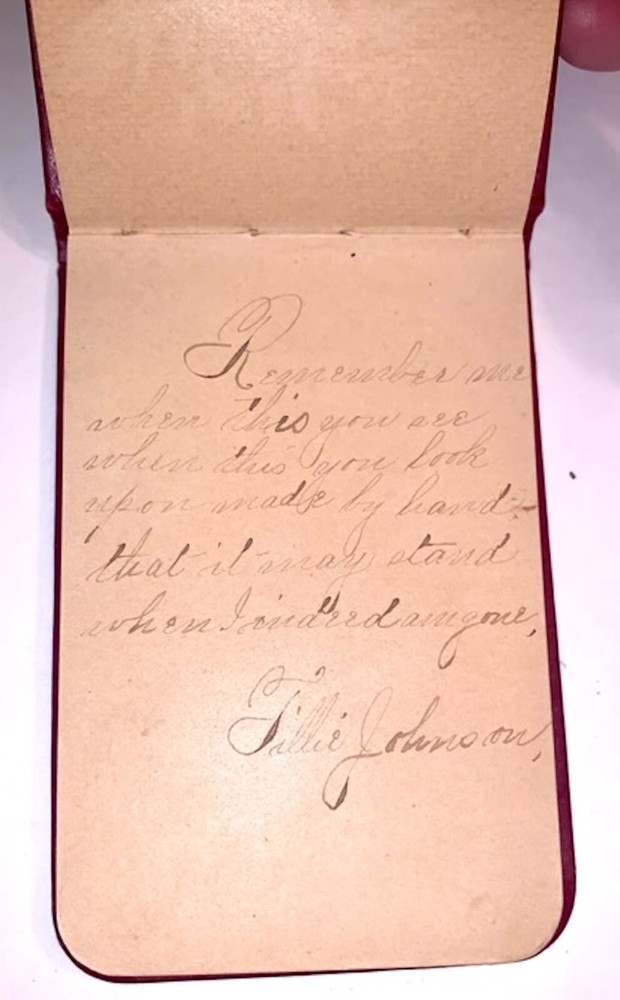 Remember me
when this you see
when this you look
upon made by hand
that it may stand
when I indeed am gone,
Tillie Johnson,